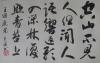 空山不見
人但聞人
語響返景
入深林復
照青苔上